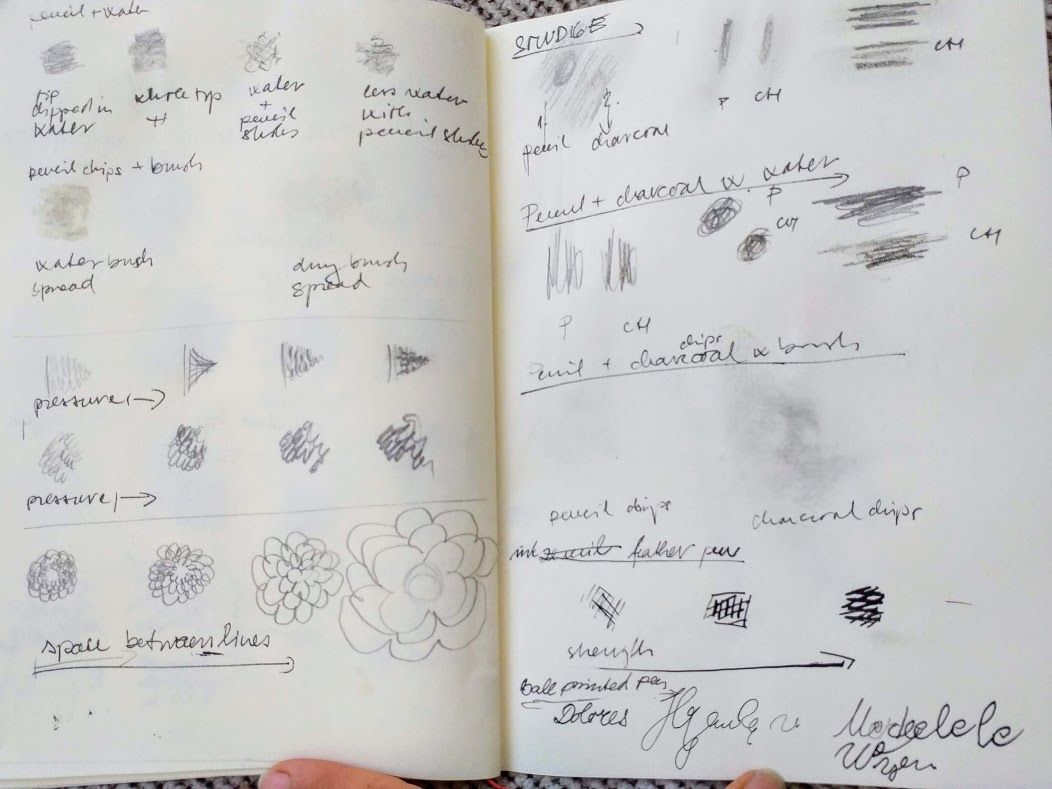 pencil + water
tip
dipped in
water
whole tip
water
+
pencil
strokes
less water
with
pencil strokes
pencil chips + brush
water brush
spread
dry brush
spread
pressure
pressure
space between lines
SMUDGE
CH
P
CH
pencil
charcoal
Pencil + charcoal w water
P
CH
P
CH
P
CH
chips
Pencil + charcoal w brush
pencil chips
charcoal chips
ink
feather pen
strength
Ball pointed pen
Dolores